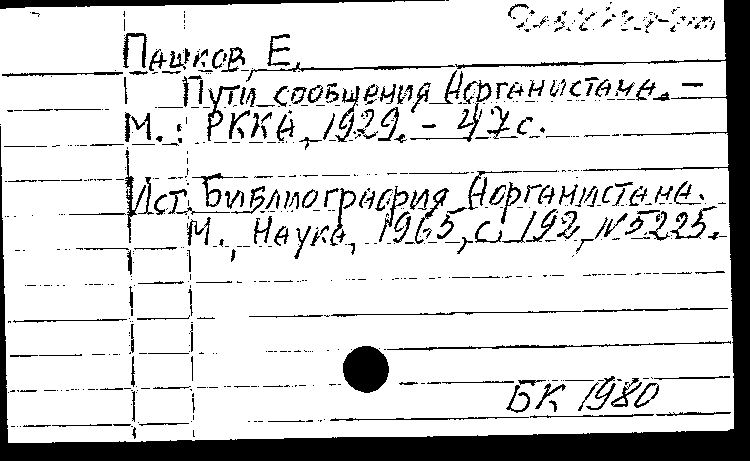 Пашков, Е.
Пути сообщения Афганистана. —
М.: РККА, 1929. - 47 с.
Ист. Библиография Афганистана.
М., Наука, 1965, с. 192, №5225.
БК 1980